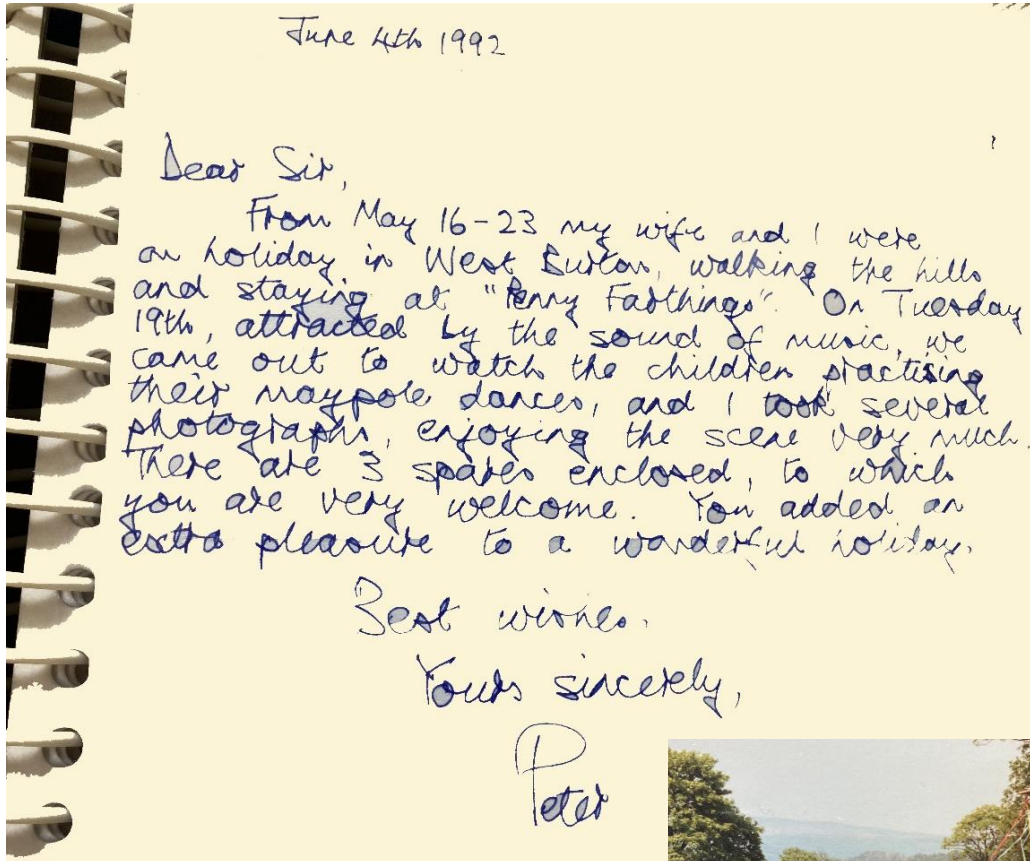 June 4th 1992
Dear Sir,
From May 16-23 my wife and I were
on holiday in West Burton, walking the hills
and staying at "Penny Farthings". On Tuesday
19th, attracted by the sound of music, we
came out to watch the children practising
their maypole dances, and I took several
photographs, enjoying the scene very much.
There are 3 spares enclosed, to which
you are very welcome. You added an
extra pleasure to a wonderful holiday.
Best wishes.
Yours sincerely,
Peter